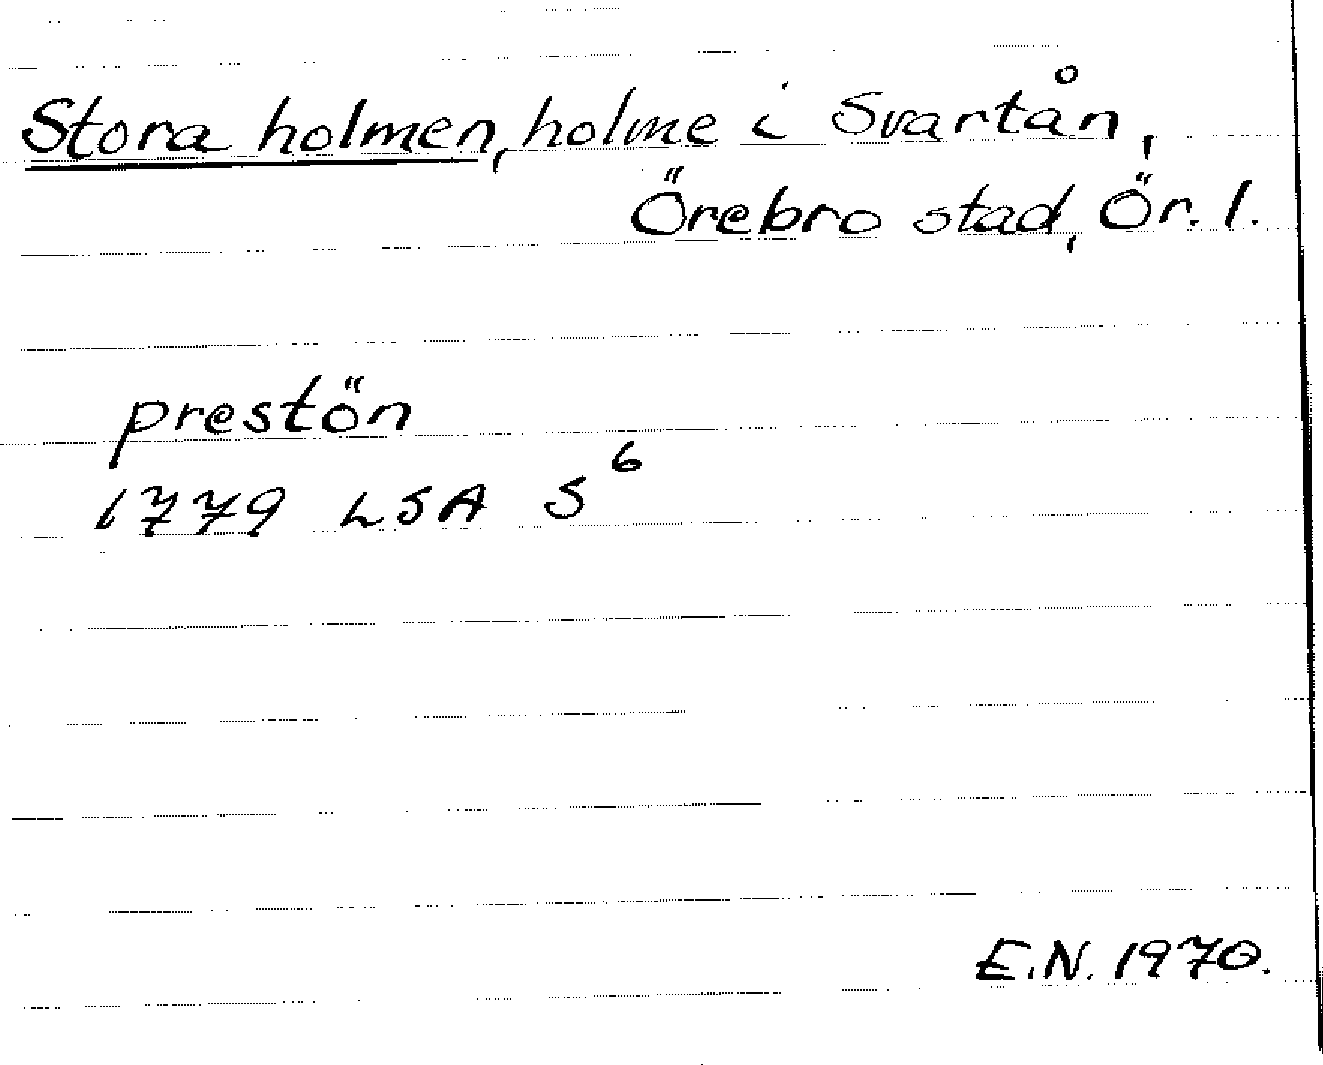 Stora holmen, holme i Svartån,
Örebro stad, Ör. l.
prestön
1779 LSA S⁶
E.N. 1970.